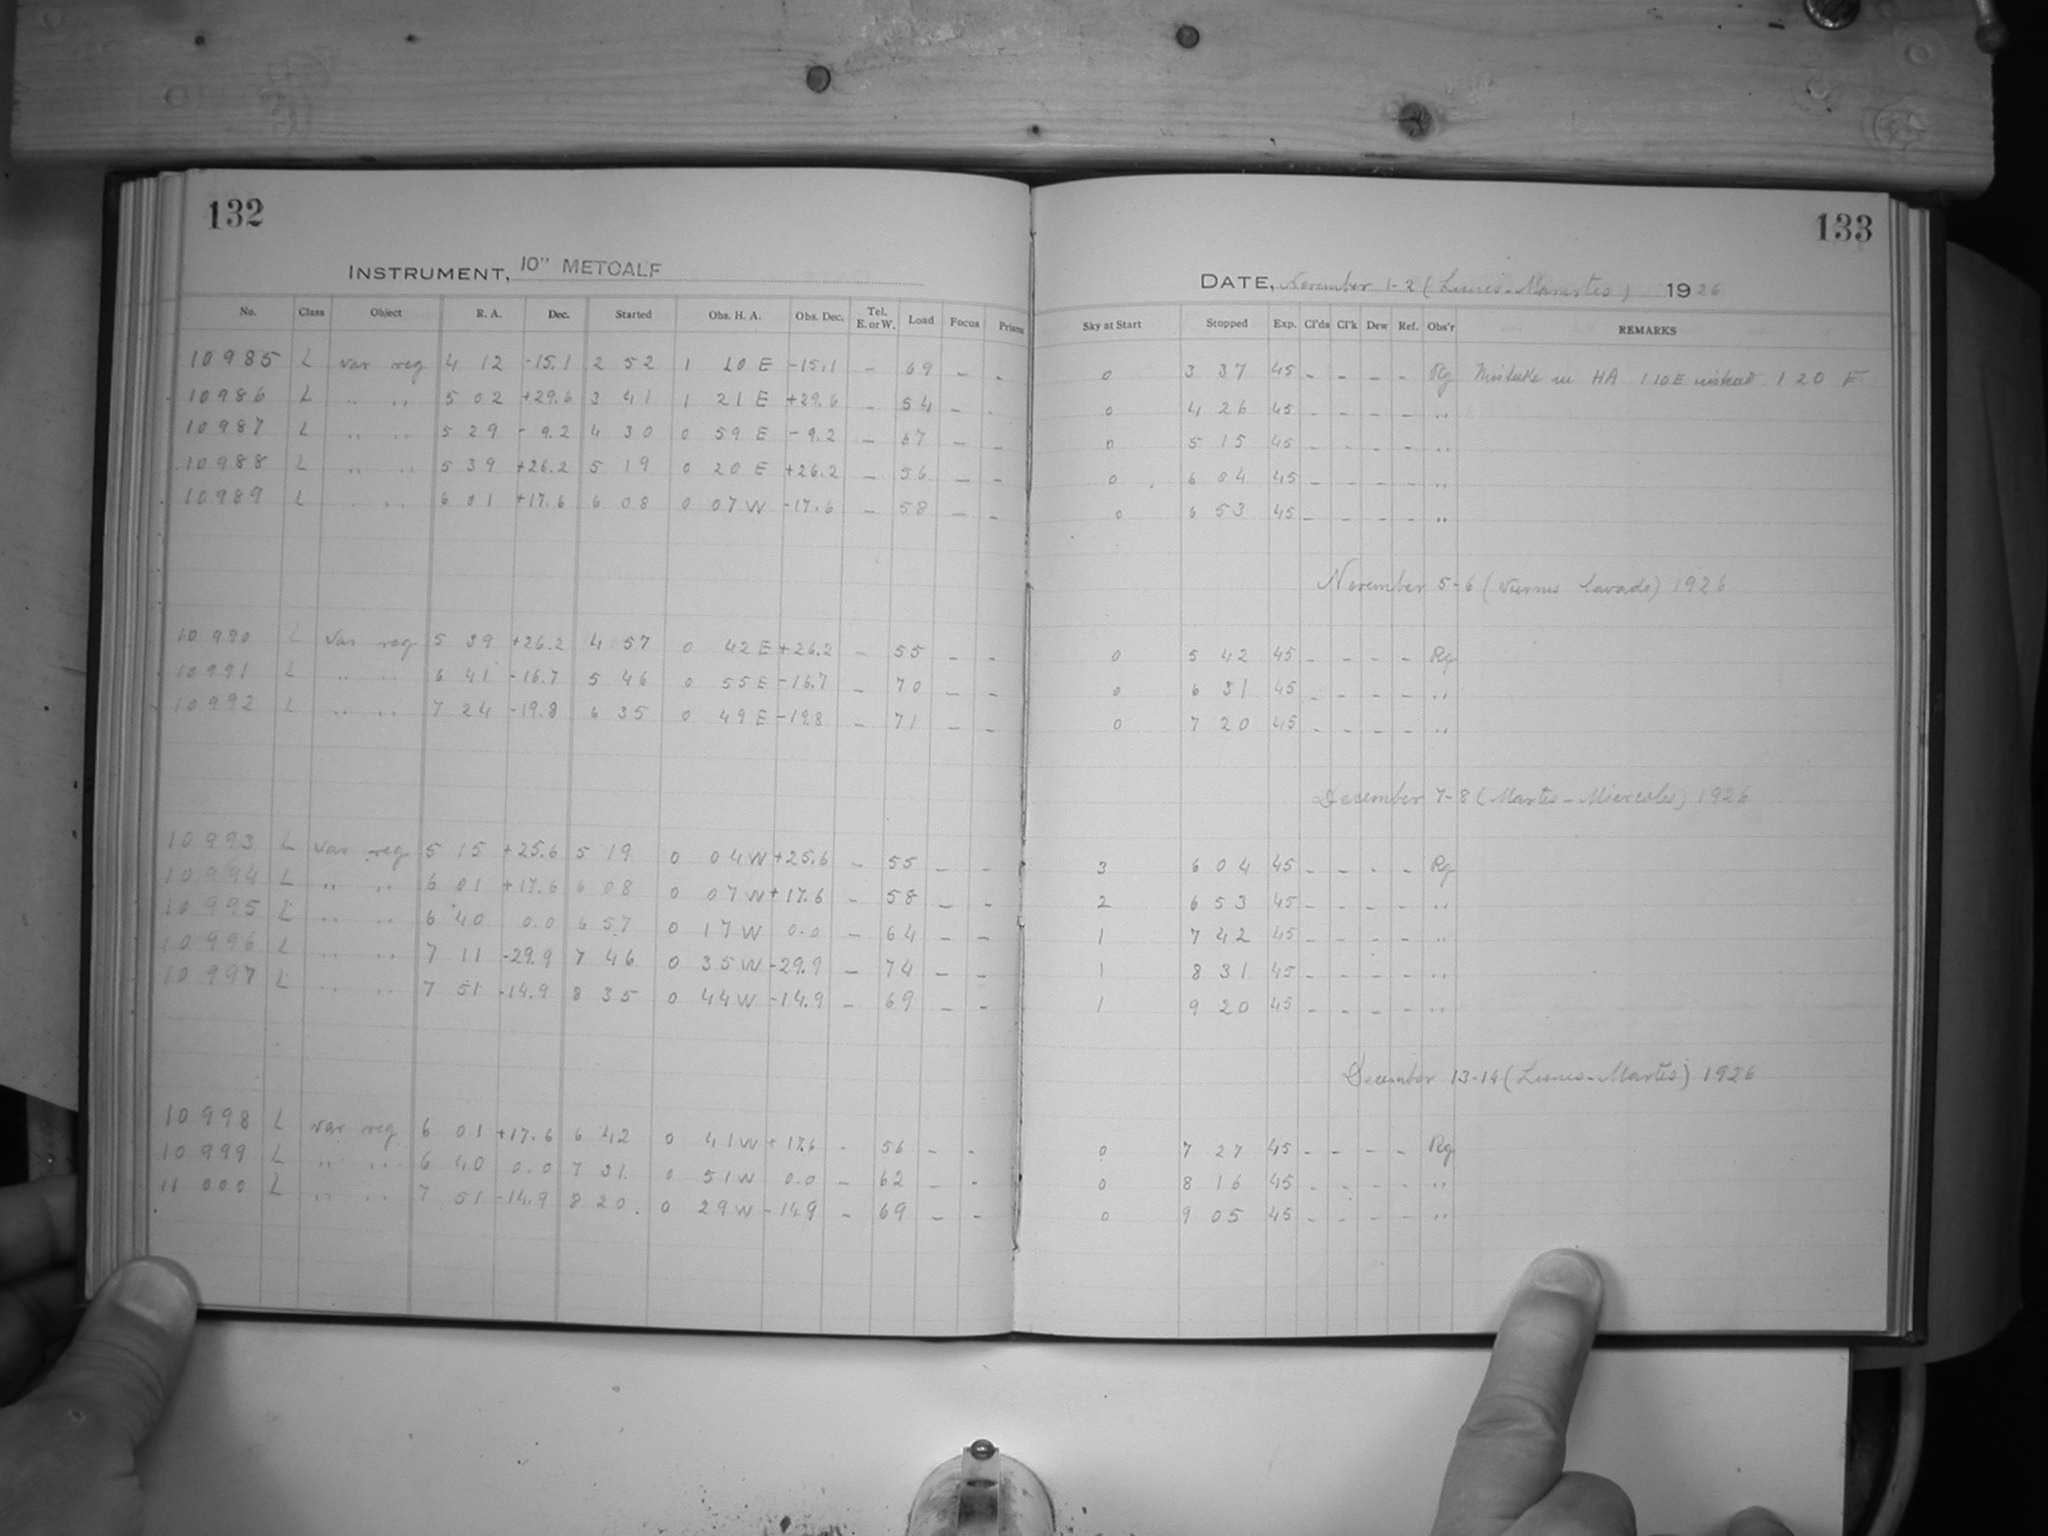 132
INSTRUMENT, 10" METCALF
No. Class Object R. A. Dec. Started Obs. H. A. Obs. Dec. Tel. E. or W. Load Focus Prisms
10985 L var reg 4 12 -15.1 2 52 1 10 E -15.1 - 69 - -
10986 L " " 5 02 +29.6 3 41 1 21 E +29.6 - 54 - -
10987 L " " 5 29 -9.2 4 30 0 59 E -9.2 - 67 - -
10988 L " " 5 39 +26.2 5 19 0 20 E +26.2 - 56 - -
10989 L " " 6 01 +17.6 6 08 0 07 W -17.6 - 58 - -
10990 L Var reg 5 39 +26.2 4 57 0 42 E +26.2 - 55 - -
10991 L " " 6 41 -16.7 5 46 0 55 E -16.7 - 70 - -
10992 L " " 7 24 -19.8 6 35 0 49 E -19.8 - 71 - -
10993 L Var reg 5 15 +25.6 5 19 0 04 W +25.6 - 55 - -
10994 L " " 6 01 +17.6 6 08 0 07 W +17.6 - 58 - -
10995 L " " 6 40 0.0 6 57 0 17 W 0.0 - 64 - -
10996 L " " 7 11 -29.9 7 46 0 35 W -29.9 - 74 - -
10997 L " " 7 51 -14.9 8 35 0 44 W -14.9 - 69 - -
10998 L var reg 6 01 +17.6 6 42 0 41 W +17.6 - 56 - -
10999 L " " 6 40 0.0 7 31 0 51 W 0.0 - 62 - -
11000 L " " 7 51 -14.9 8 20 0 29 W -14.9 - 69 - -
133
DATE, November 1-2 (Lunes-Martes) 1926
Sky at Start Stopped Exp. Cl'ds Cl'k Dew Ref. Obs'r REMARKS
0 3 37 45 - - - - Rg Mistake in HA 1 10 E instead 1 20 E
0 4 26 45 - - - - "
0 5 15 45 - - - - "
0 6 04 45 - - - - "
0 6 53 45 - - - - "
November 5-6 (Viernes 1926
0 5 42 45 - - - - Rg
0 6 31 45 - - - - "
0 7 20 45 - - - - "
December 7-8 (Martes-Miercoles) 1926
3 6 04 45 - - - - Rg
2 6 53 45 - - - - "
1 7 42 45 - - - - "
1 8 31 45 - - - - "
1 9 20 45 - - - - "
December 13-14 (Lunes-Martes) 1926
0 7 27 45 - - - - Rg
0 8 16 45 - - - - "
0 9 05 45 - - - - "